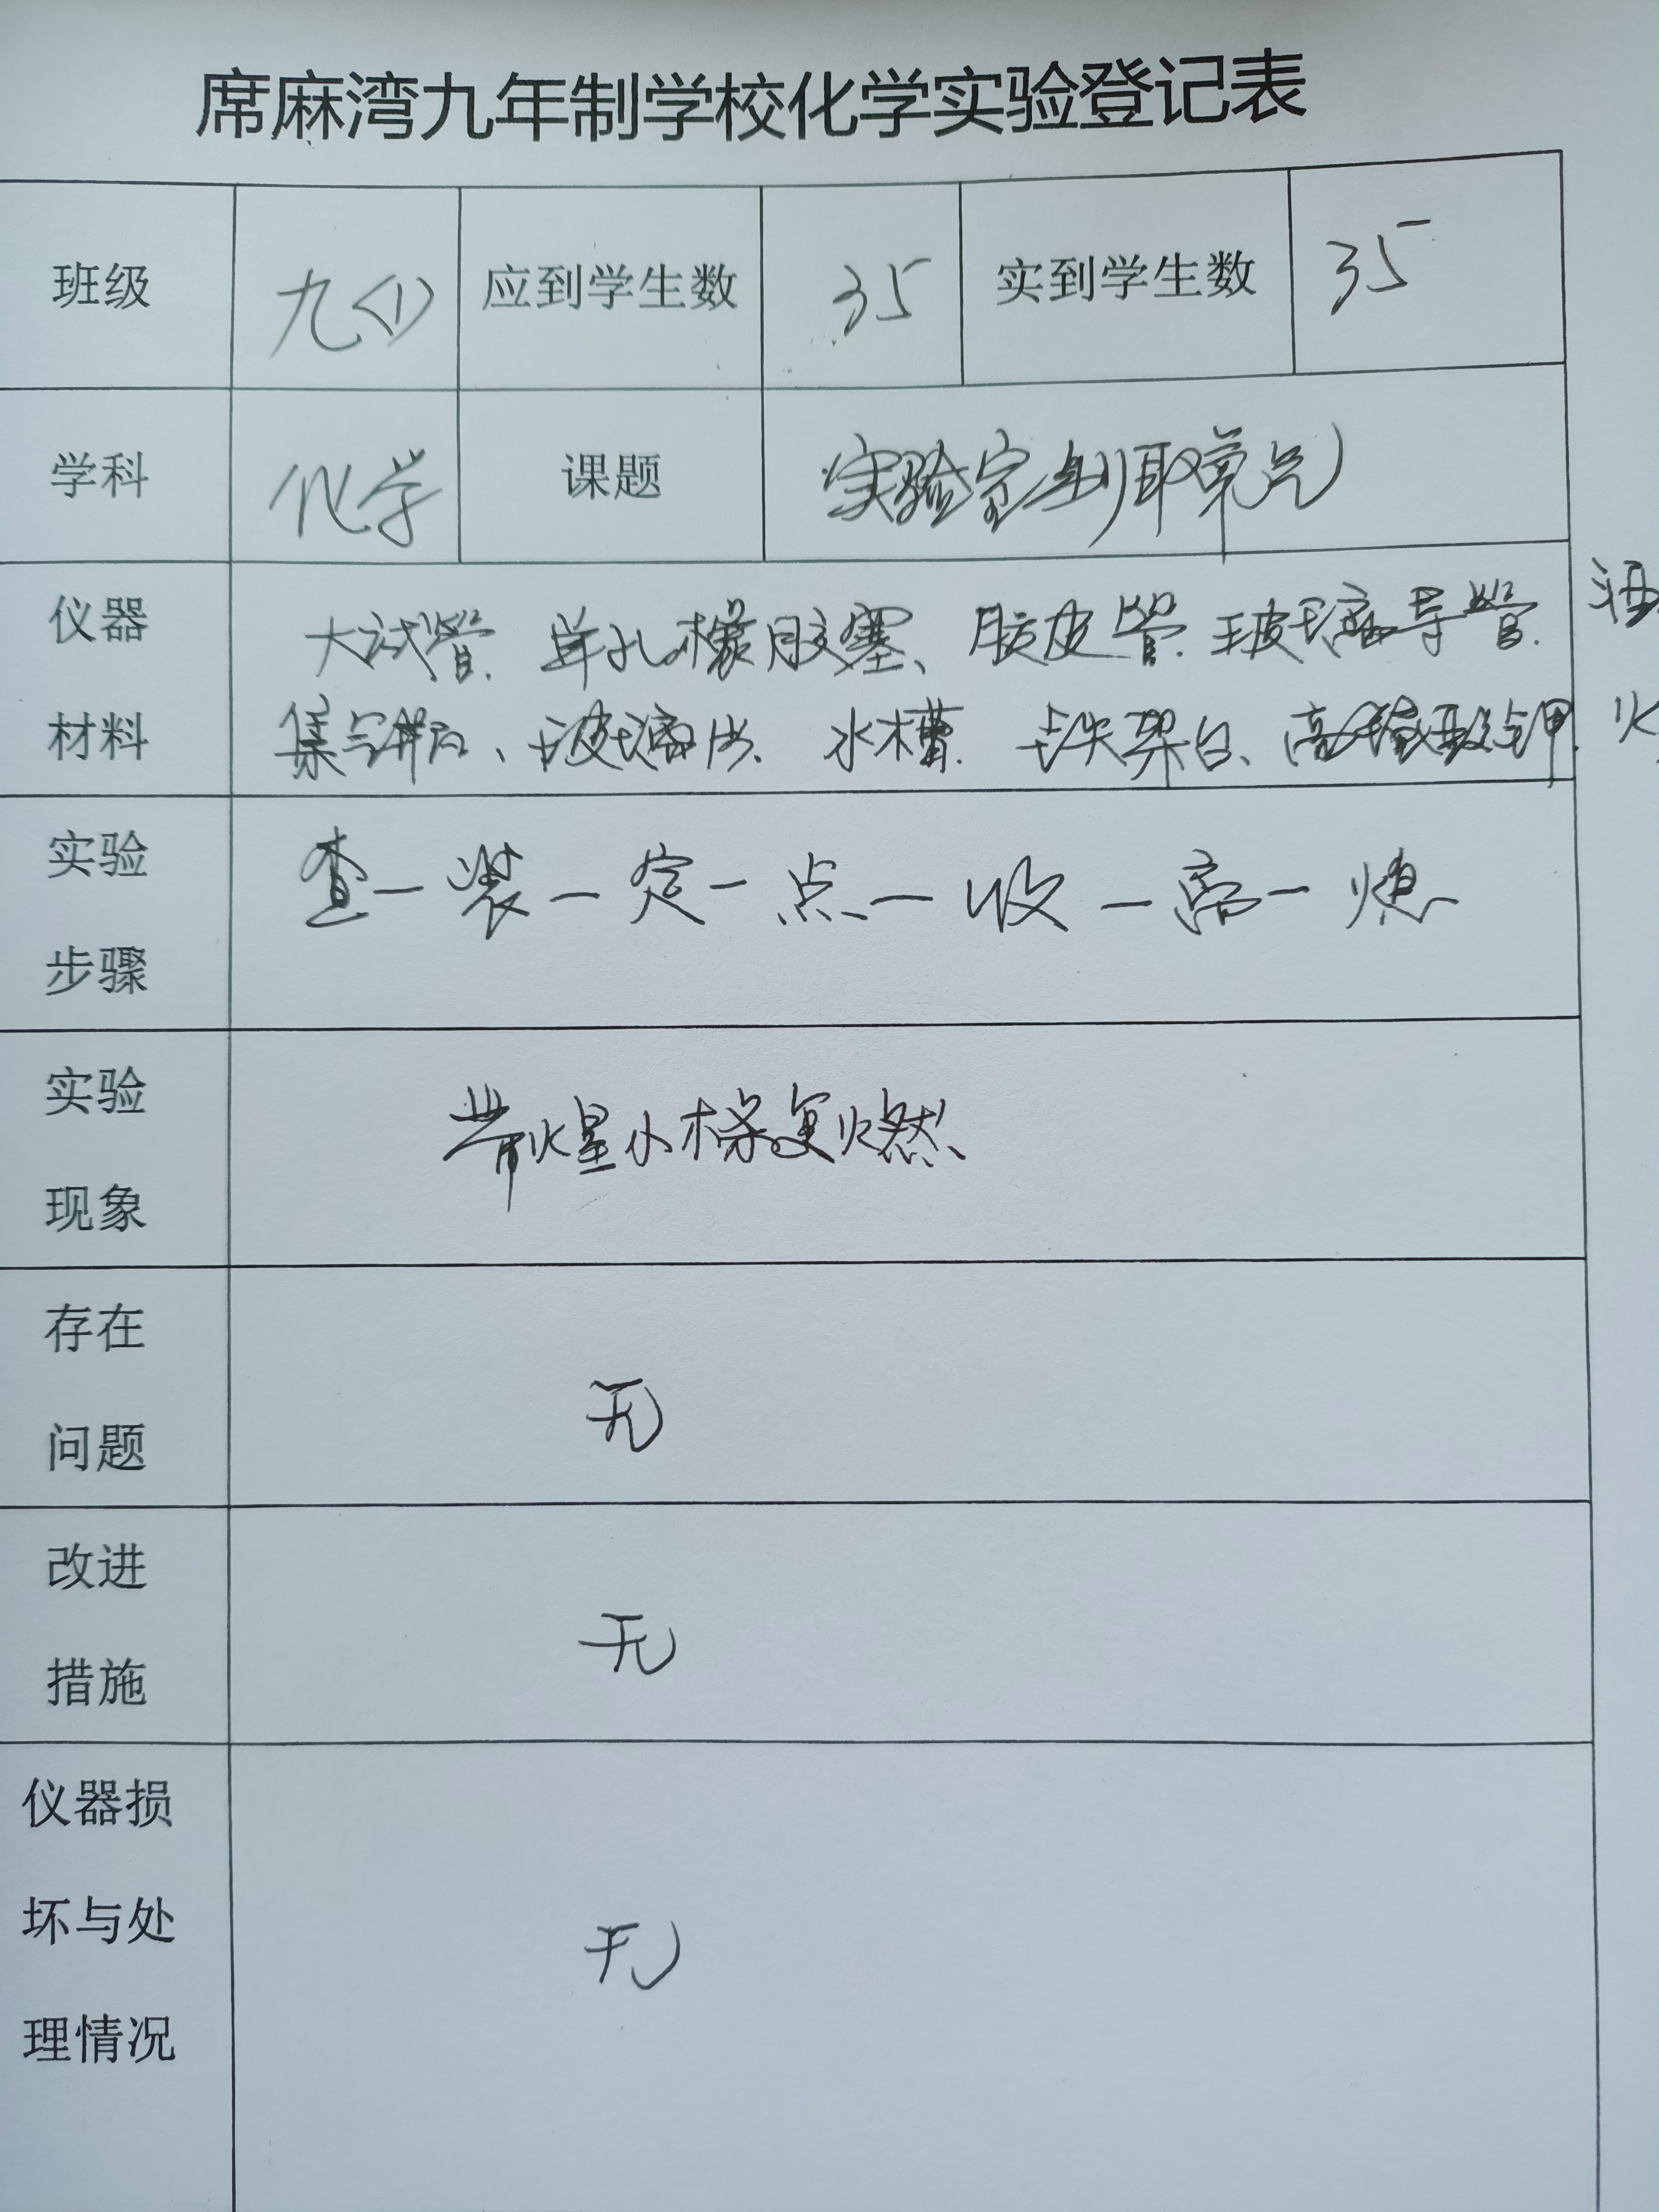 席麻湾九年制学校化学实验登记表
班级 九<1> 应到学生数 35 实到学生数 35
学科 化学 课题 实验室制取氧气
仪器 大试管、单孔橡胶塞、胶皮管、玻璃导管、酒
材料 集气瓶、玻璃片、水槽、铁架台、高锰酸钾、火
实验 查一装一定一点一收一离一熄
步骤
实验 带火星小木条复燃
现象
存在
问题 无
改进
措施 无
仪器损
坏与处 无
理情况